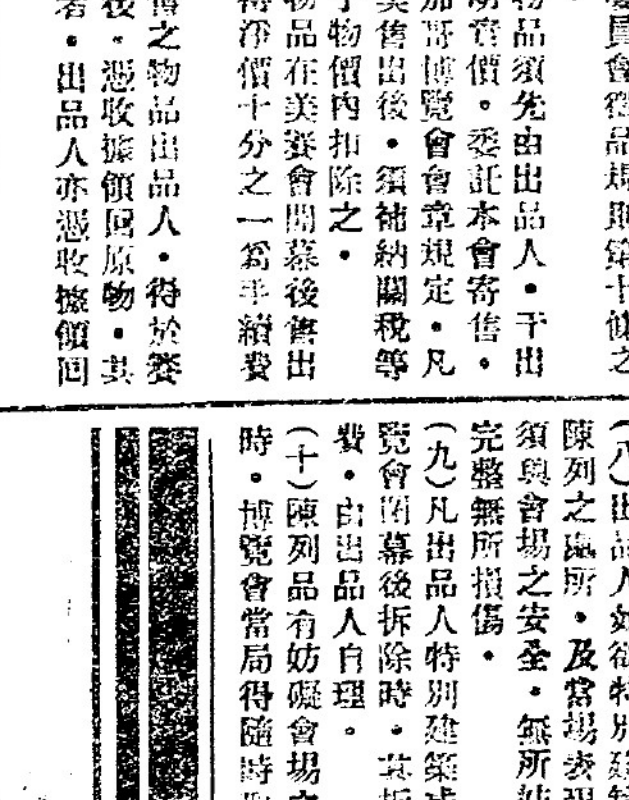 員會徵品規則第十條之
物品須先由出品人・于出
實價。委託本會寄售。
加哥博覽會會章規定・凡
售出後・須補納關稅等
物價內扣除之・
物品在美賽會開幕後售出
得淨價十分之一爲手續費
之物品出品人・得於賽
後・憑收據領回原物・其
者・出品人亦憑收據領回
(八)出品人如欲特別
陳列之處所・及當場表現
須與會場之安全・無所
完整無所損傷・
(九)凡出品人特別建築或
覽會閉幕後拆除時・其拆
費・由出品人自理。
(十)陳列品有妨礙會場之
時。博覽會當局得隨時